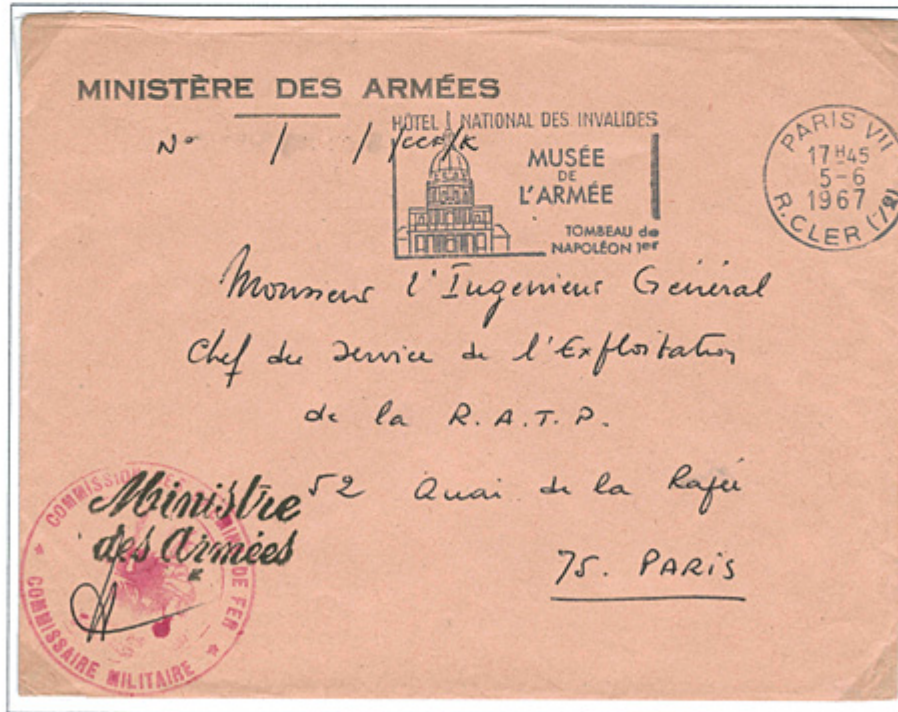 MINISTÈRE DES ARMÉES
N° / / /CCF/K
HÔTEL NATIONAL DES INVALIDES
MUSÉE
DE
L'ARMÉE
TOMBEAU de
NAPOLÉON 1er
PARIS VII
17H45
5-6
1967
R. CLER (72)
Monsieur l'Ingenieur Général
Chef du Service de l'Exploitation
de la R.A.T.P.
52 Quai de la Rapée
75. PARIS
Ministre
des Armées
COMMISSION DES CHEMINS DE FER
COMMISSAIRE MILITAIRE